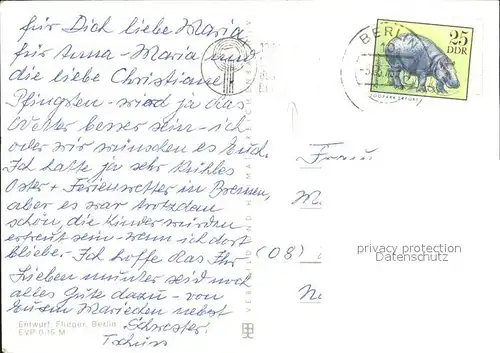 für Dich liebe Maria
für Anna-Maria und
die liebe Christiane
Pfingsten - wird ja das
Wetter besser sein - ich
oder wir wünschen es Euch.
Ich hatte ja sehr kühles
Oster + Ferienwetter in Bremen,
aber es war trotzdem
schön, die Kinder würden
erfreut sein - wenn ich dort
bliebe. Ich hoffe das Ihr
Lieben munter seid und
alles Gute dazu - von
Mariechen nebst
Schwester.
Tschüss
Entwurf: Flieger, Berlin
EVP 0,15 M
BERLIN
10
25
DDR
ZOOPARK ERFURT
Frau
M
(08)
N
privacy protection
Datenschutz